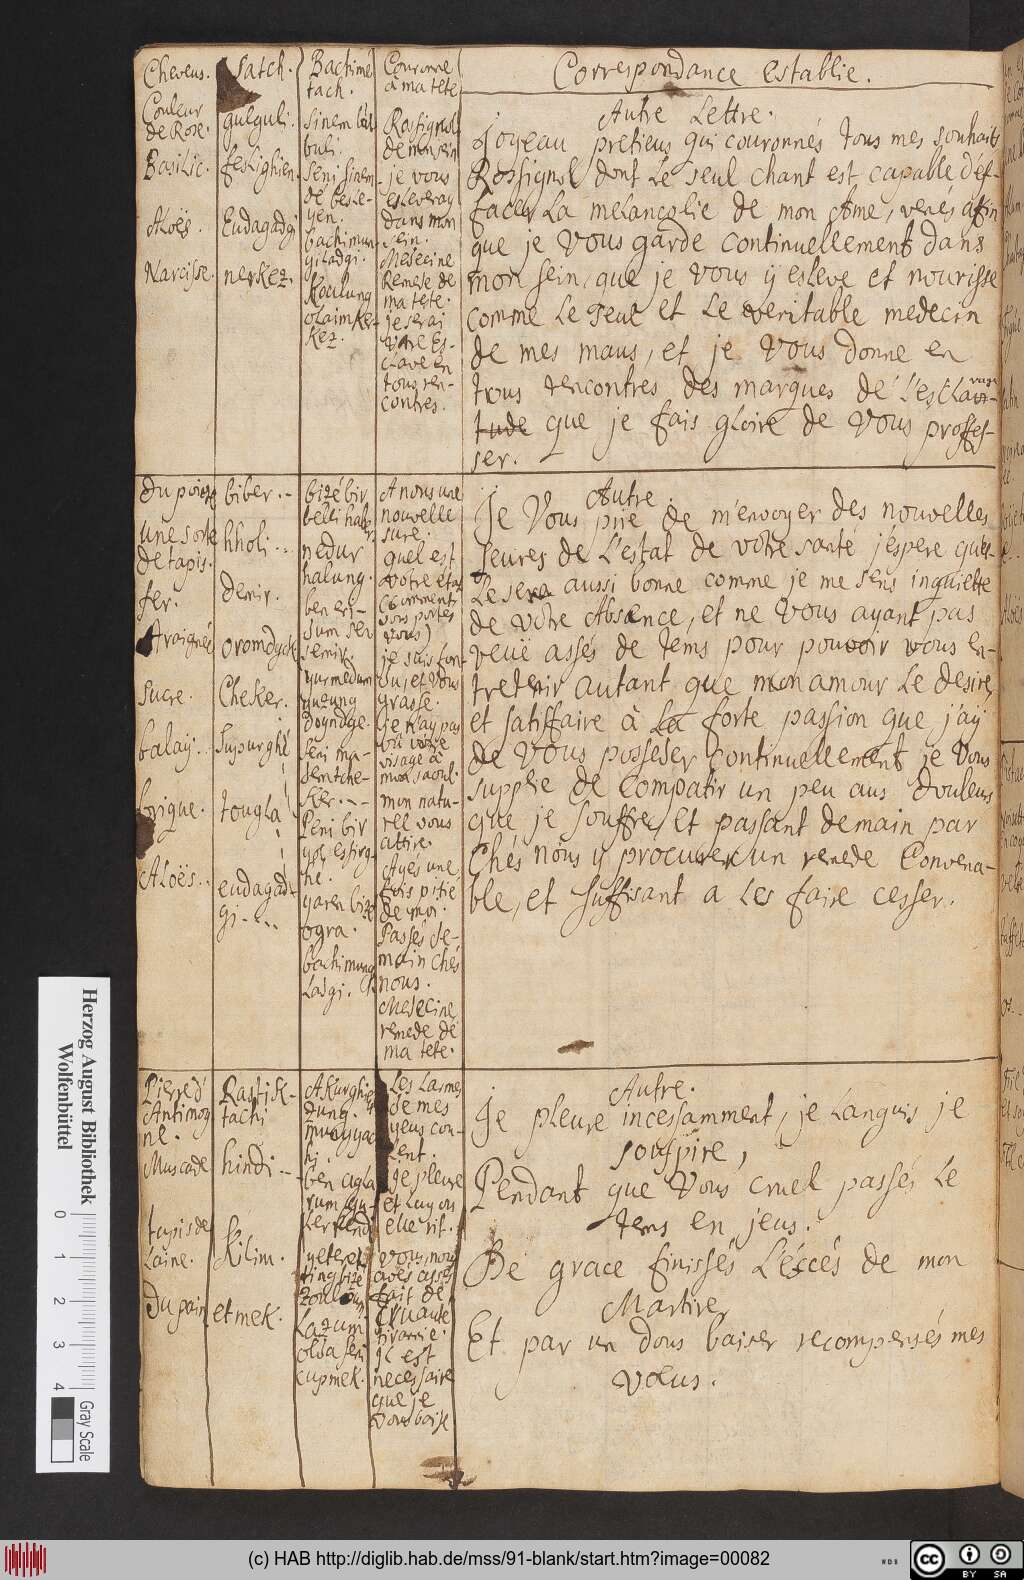 Correspondance establie.
Cheveus.
Couleur
de Rose.
Basilic.
Aloës.
Narcisse.
satch.
gulguli.
feslighien.
Eudagadgi
nerkez.
Bachime
tach.
sinem bul
buli.
seni sinem-
de besle-
yen.
bachimun
giladgi.
Koulung
olaimker-
kez.
Couronne
à ma tete
Rossignol
de mon sein
je vous
esleveray
dans mon
sein.
Medecine
Remede de
ma tete.
je serai
vôtre Es-
clave en
tous ren-
contres.
Autre Lettre.
Joyeau pretieus qui couronnés tous mes souhaits
Rossignol dont Le seul chant est capable d'ef-
facer La melancolie de mon Ame, venés afin
que je Vous garde continuellement dans
mon sein, que je vous y esleve et nourisse
comme Le seul et Le veritable medecin
de mes maus, et je Vous donne en
tous rencontres des marques de L'escla
vage
tude que je fais gloire de Vous profes-
ser.
Du poivre
une sorte
de tapis.
fer.
Araignée
sucre.
balay.
brique.
Aloës.
biber.
hholi
demir.
oromdgek
Cheker.
supurghé
tougla
eudagad-
gi
bizé bir
belli haber
nedur
halung.
ben eri-
sum ser
semir.
gurmedum
yuzung
doyndge.
seni ma-
demtche-
ker.
Peni bir
yol esirg-
he.
yaren bize
ogra.
bachimung
Ladgi.
A nous une
nouvelle
sure.
quel est
votre état
(Comment
vous portes
vous)
je suis fon-
du et vous
grasse.
je n'ay pas
vû votre
visage à
mon saoul.
mon natu-
rel vous
attire.
Ayes une
fois pitié
de moi.
Passés de-
main chés
nous.
Medecine
remede de
ma tete.
Autre.
Je Vous prie de m'envoyer des nouvelles
seures de L'estat de votre santé j'espere qu'el-
Le sera aussi bonne comme je me sens inquiette
de vôtre Absence, et ne Vous ayant pas
veüe assés de tems pour pouvoir vous en-
tretenir autant que mon amour Le desire,
et satisfaire à La forte passion que j'ay
de Vous posseder continuellement je Vous
supplie de compatir un peu aus douleurs
que je souffre, et passant demain par
Chés nous y procurer un remede Convena-
ble, et suffisant a Les faire cesser.
Pierre d'
Antimoy
ne.
Muscade
tapis de
Laine.
Du pain
Rastik-
tachi
hindi
Kilim.
etmek.
Akurghie
zung.
hi.
ben agla
rum gu-
Ler
yeter et-
ting bize
Lazum
olda seni
eupmek.
Les Larmes
de mes
yeus cou-
Lent.
je pleure
et Luy ou
elle rit.
Vous nous
avés assés
fait de
Cruauté
tirannie.
il est
necessaire
que je
vous baise
Autre.
Je pleure incessamment, je Languis je
souspire,
Pendant que Vous cruel passés Le
tems en jeus.
De grace finissés L'éxcés de mon
Martire,
Et par un dous baiser recompensés mes
vœus.
Herzog August Bibliothek
Wolfenbüttel
0 1 2 3 4
Gray Scale
(c) HAB http://diglib.hab.de/mss/91-blank/start.htm?image=00082
WDB
cc
BY SA